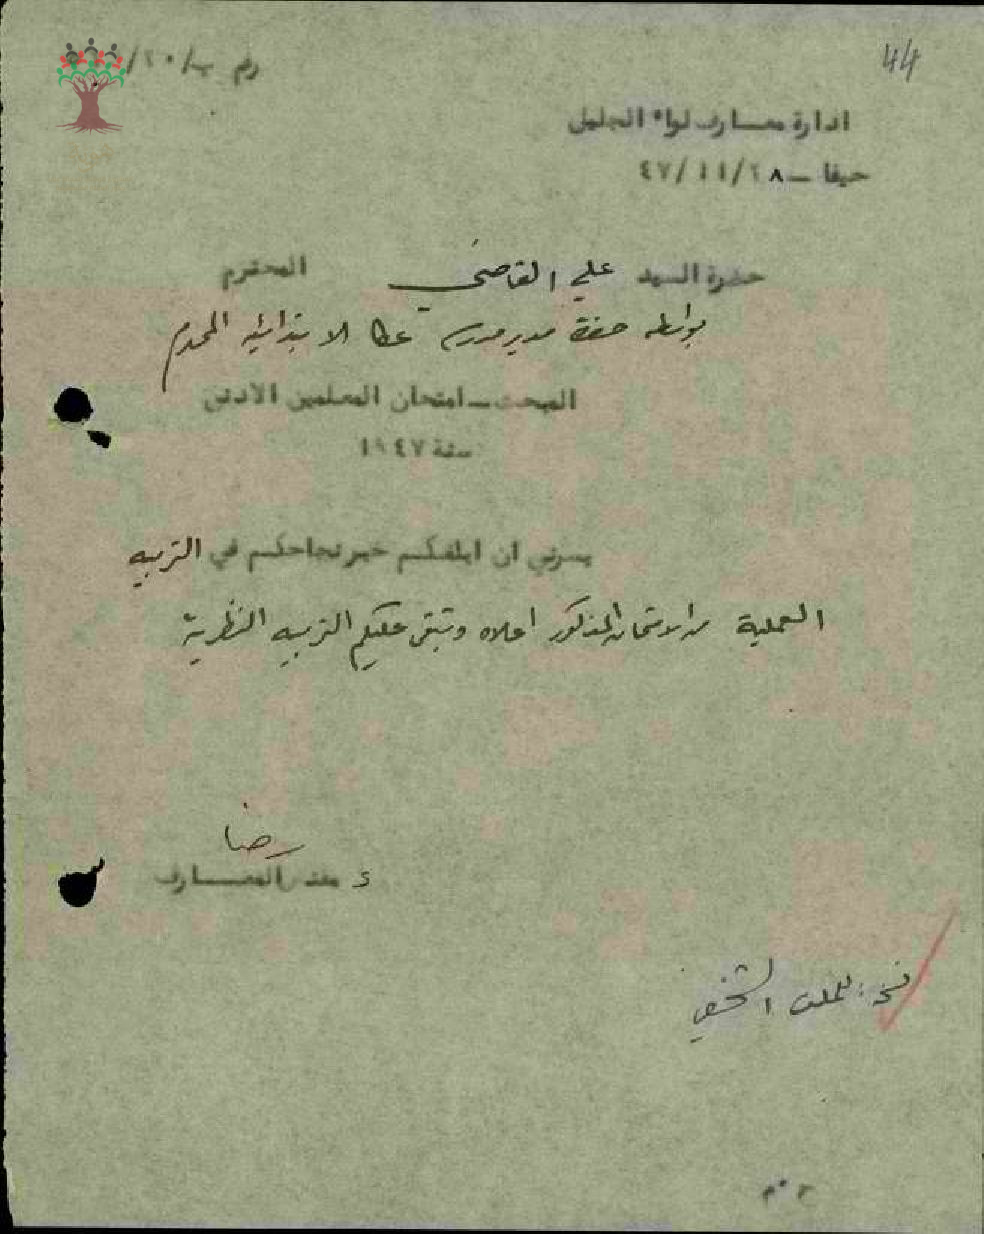 44
رقم ب/٢٠/
ادارة معارف لواء الجليل
حيفا – ٢٨/١١/٤٧
حضرة السيد علي القاضي المحترم
بواسطة حضرة مدير مدرسة عكا الابتدائيه المحترم
المبحث – امتحان المعلمين الادنى
سنة ١٩٤٧
يسرني ان ابلغكم خبر نجاحكم في التربيه
العملية من الامتحان المذكور اعلاه وتبقى عليكم التربيه النظرية
رضا
مفتش المعارف
نسخه : للملف الشخصي